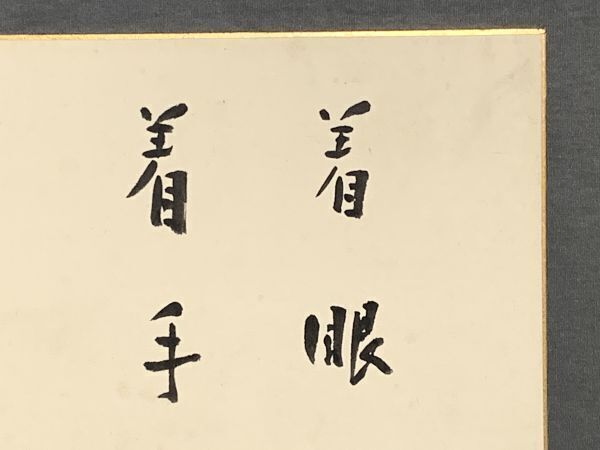 着眼
着手